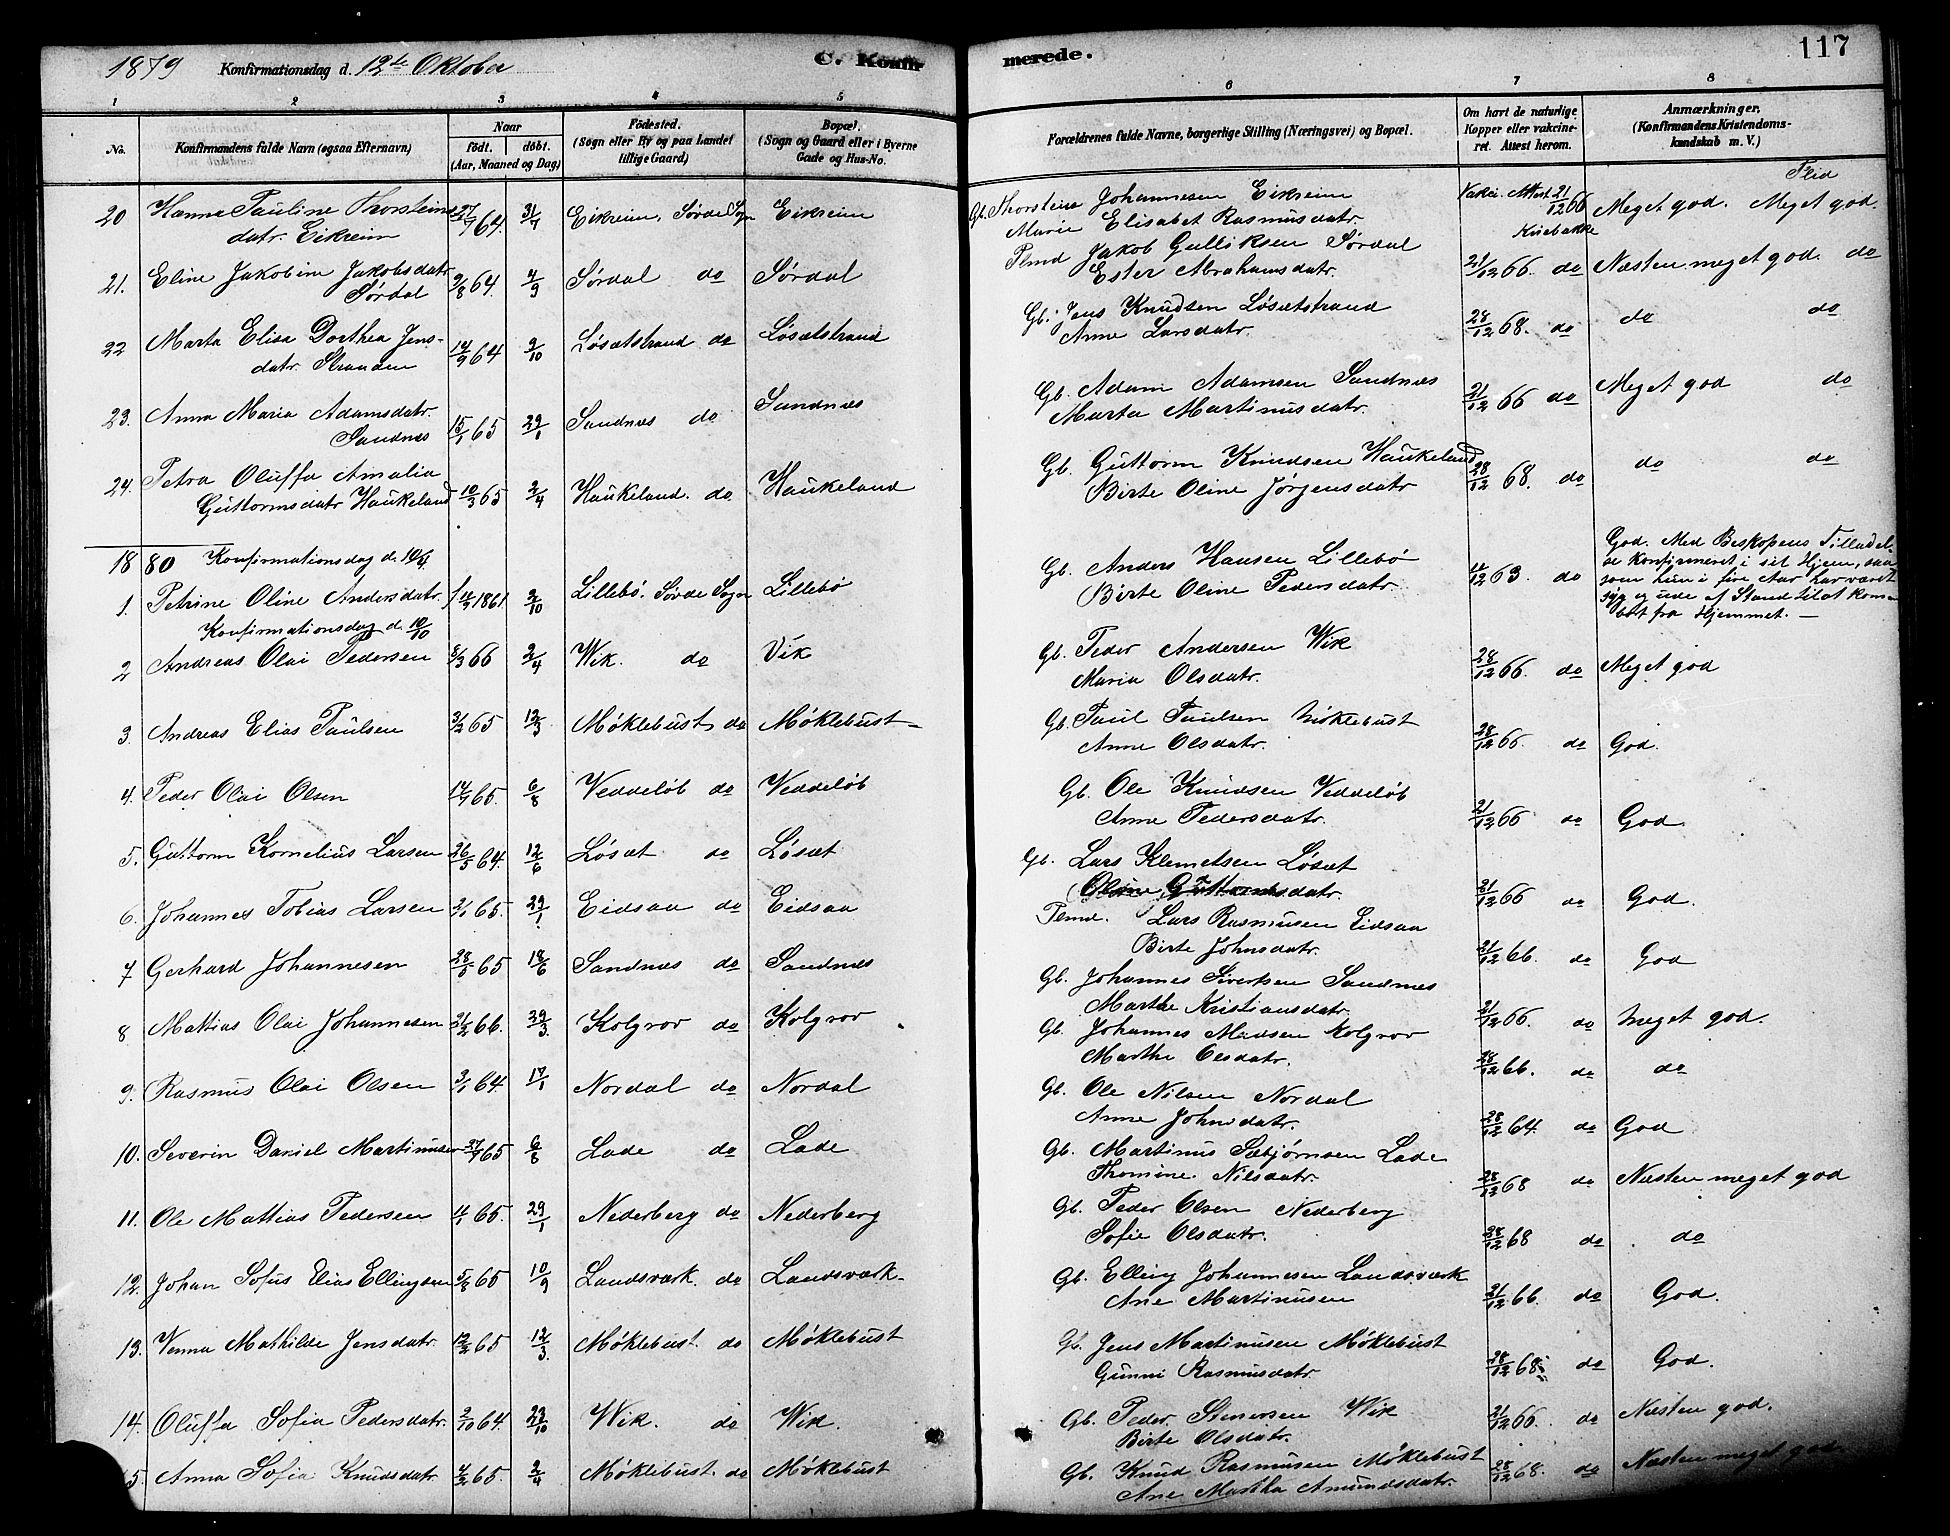 1879 Konfirmationsdag d. 12te Oktober C. Konfir
merede. 117
1 2 3 4 5 6 7 8
No. Konfirmandens fulde Navn (ogsaa Efternavn) Naar födt. döbt. (Aar, Maaned og Dag) Födested. (Sogn eller By og paa Landet tillige Gaard) Bopæl. (Sogn og Gaard eller i Byerne Gade og Hus-No.
Forældrenes fulde Navne, borgerlige Stilling (Næringsvei) og Bopæl. Om havt de naturlige Kopper eller vakcineret. Attest herom. Anmærkninger. (Konfirmandens Kristendomskundskab m. V.)
Flid
20 Hanna Pauline Thorsteins 27/7 64. 31/7 Eikreim, Sørde Sogn Eikreim Gb. Thorstein Johannesen Eikreim Vakci. Attest 21/12 66 Meget god. Meget god.
datr. Eikreim Marie Elisabet Rasmusdatr.
21. Eline Jakobine Jakobsdatr. 9/8 64. 4/9 Sørdal do Sørdal Plmd Jakob Gulliksen Sørdal 21/12 66. do Næsten meget god. do
Sørdal Ester Abrahamsdatr.
22 Marta Elisa Dorthea Jens- 14/9 64 2/10 Løsætstrand do Løsætstrand Gb. Jens Knudsen Løsætstrand 28/12 68. do do do
datr. Stranden Anne Larsdatr.
23. Anna Maria Adamsdatr. 15/1 65 29/1 Sandnæs do Sandnæs Gb. Adam Adamsen Sandnæs 21/12 66 do Meget god do
Sandnæs Marta Martinusdatr.
24. Petra Oluffa Amalia 10/3 65 2/4 Haukeland. do Haukeland Gb. Guttorm Knudsen Haukeland 28/12 68. do do do
Guttormsdatr Haukeland Birte Oline Jørgensdatr
1880 Konfirmationsdag d. 10/4
1. Petrine Oline Andersdatr. 1861. 2/10 Lillebø. Sørde Sogn Lillebø Gb. Anders Hansen Lillebø 63. do God. Med Biskopens Tilladel-
Birte Oline Pedersdatr. se konfirmeret i sit Hjem, saa
som hun i fire Aar har været
syg og ude af Stand til at kom-
me bort fra Hjemmet. —
Konfirmationsdag d. 10/10
2 Andreas Olai Pedersen 8/3 66 2/4 Wik. do Vik Gb. Peder Andersen Wik 28/12 66. do Meget god
Maria Olsdatr.
3. Andreas Elias Paulsen 65 12/3 Møklebust do Møklebust Gb. Paul Paulsen Møklebust 28/12 66. do God.
Anne Olsdatr.
4. Peder Olai Olsen 17/7 65. 6/8 Veddeløb do Veddeløb Gb. Ole Knudsen Veddeløb 21/12 66 do God
Anne Pedersdatr.
5. Guttorm Kornelius Larsen 26/5 64. 12/6 Løsæt do Løsæt Gb. Lars Klemetsen Løsæt 21/12 66 do God.
Oline Guttormsdatr.
6. Johannes Tobias Larsen 2/1 65. 29/1 Eidsaa do Eidsaa Plmd. Lars Rasmusen Eidsaa 21/12 66. do God
Birte Johnsdatr.
7 Gerhard Johannesen 28/5 65 18/6 Sandnæs do Sandnæs Gb. Johannes Sivertsen Sandnæs 21/12 66. do Meget god.
Marthe Kristiansdatr.
8 Mattias Olai Johannesen 21/2 66. 29/3 Kolgrov do Kolgrov Gb. Johannes Madsen Kolgrov 28/12 66. do do
Marthe Olsdatr.
9. Rasmus Olai Olsen 3/1 64. 17/1 Nordal do Nordal Gb. Ole Nilsen Nordal 28/12 64. do God
Anne Johnsdatr.
10. Severin Daniel Martinusen 27/7 65 6/8 Lade do Lade Gb. Martinus Sæbjørnsen Lade 28/12 68 do Næsten meget god
Thomine Nilsdatr.
11. Ole Mattias Pedersen 4/1 65. 29/1 Nederberg do Nederberg Gb. Peder Olsen Nederberg 28/12 68 do do
Sofie Olsdatr.
12. Johan Sofus Elias Ellingsen 5/8 65 10/9 Landsværk. do Landsværk Gb. Elling Johannesen Landsværk 21/12 66. do God.
Ane Martinusen
13. Venna Mathilde Jensdatr. 12/2 65 12/3. Møklebust. do Møklebust Gb. Jens Martinusen Møklebust 28/12 68. do God.
Gunni Rasmusdatr.
14. Oluffa Sofia Pedersdatr. 2/10 64. 23/10 Wik. do Wik. Gb. Peder Stenersen Wik 21/12 66. do Næsten god.
Birte Olsdatr.
5. Anna Sofia Knudsdatr 4/2 65. 2/4 Møklebust. do Møklebust Gb. Knud Rasmusen Møklebust 28/12 68. do Næsten meget god
Ane Martha Amundsdatr.